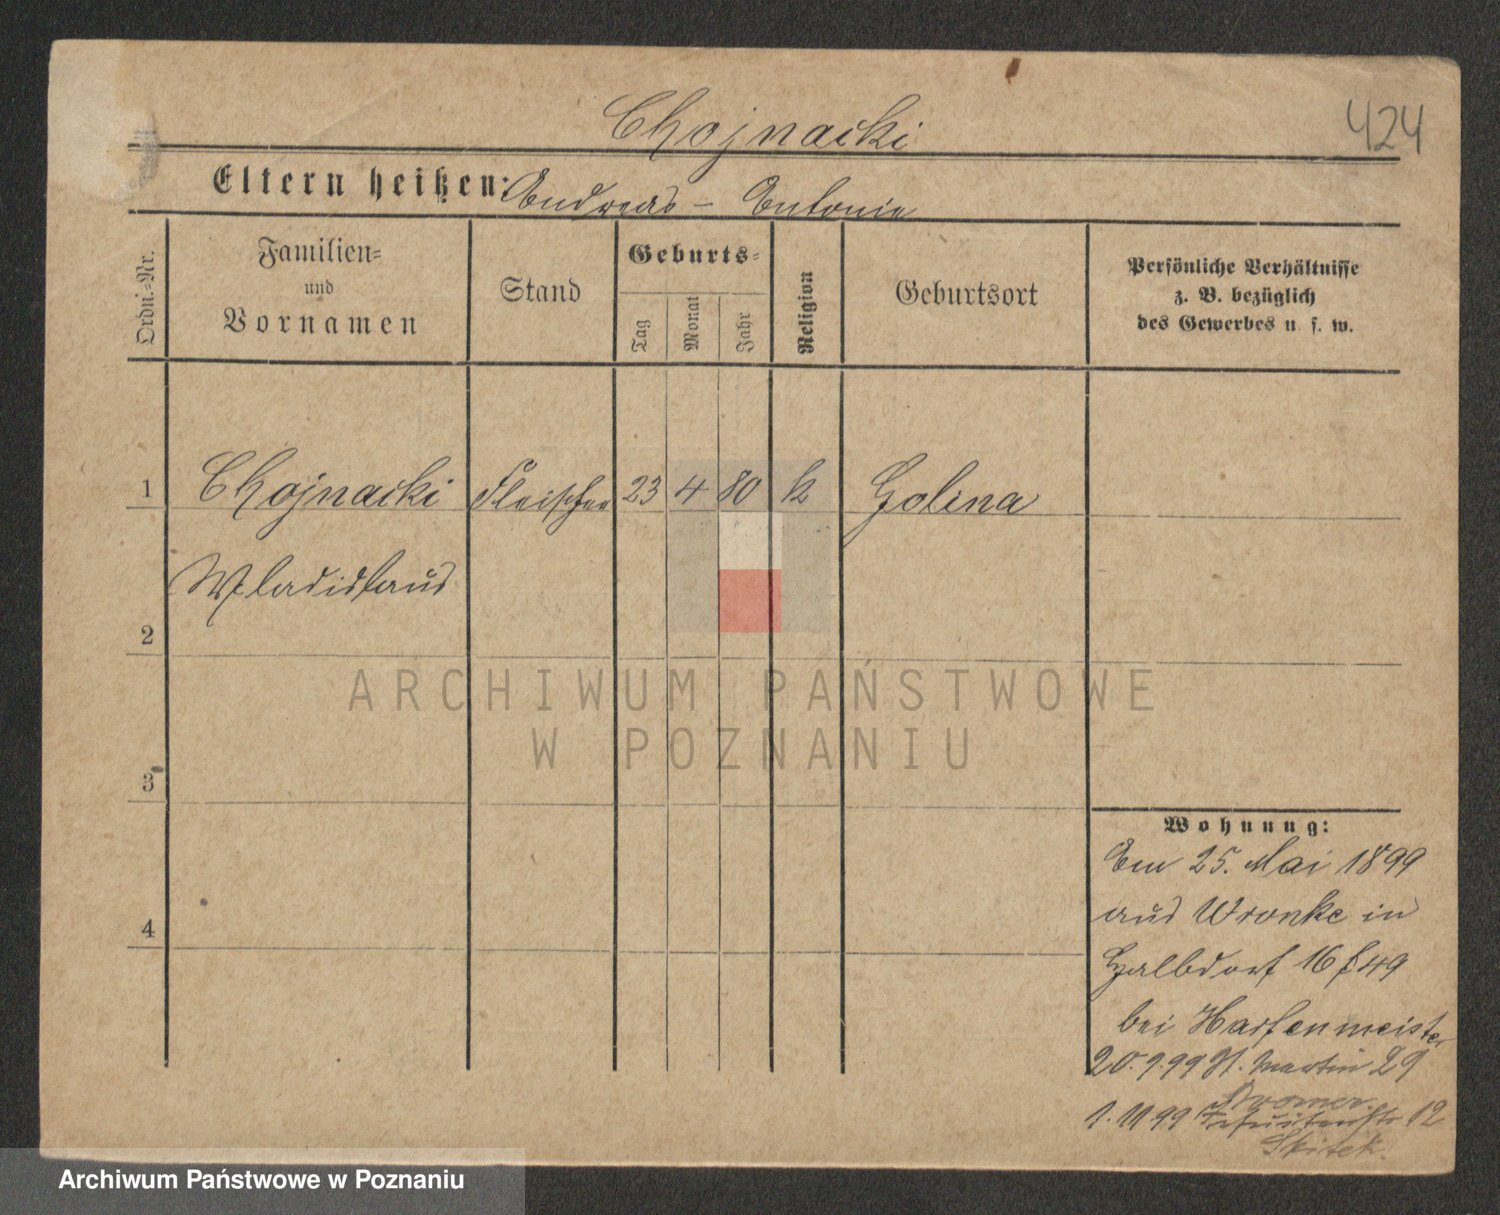 Chojnacki
424
Eltern heißen: Andreas – Antonie
Ordn.-Nr.
Familien-
und
Vornamen
Stand
Geburts-
Tag
Monat
Jahr
Religion
Geburtsort
Persönliche Verhältnisse
z. B. bezüglich
des Gewerbes u. s. w.
1 Chojnacki Fleischer 23 4 80 k Golina
Wladislaus
2
ARCHIWUM PAŃSTWOWE
W POZNANIU
3
4
Wohnung:
Am 25. Mai 1899
aus Wronke in
Halbdorf 16 f 49
bei Harfenmeister
20.9.99 St. Martin 29
Kromer
1.11.99 Jesuitenstr 12
Skitek.
Archiwum Państwowe w Poznaniu